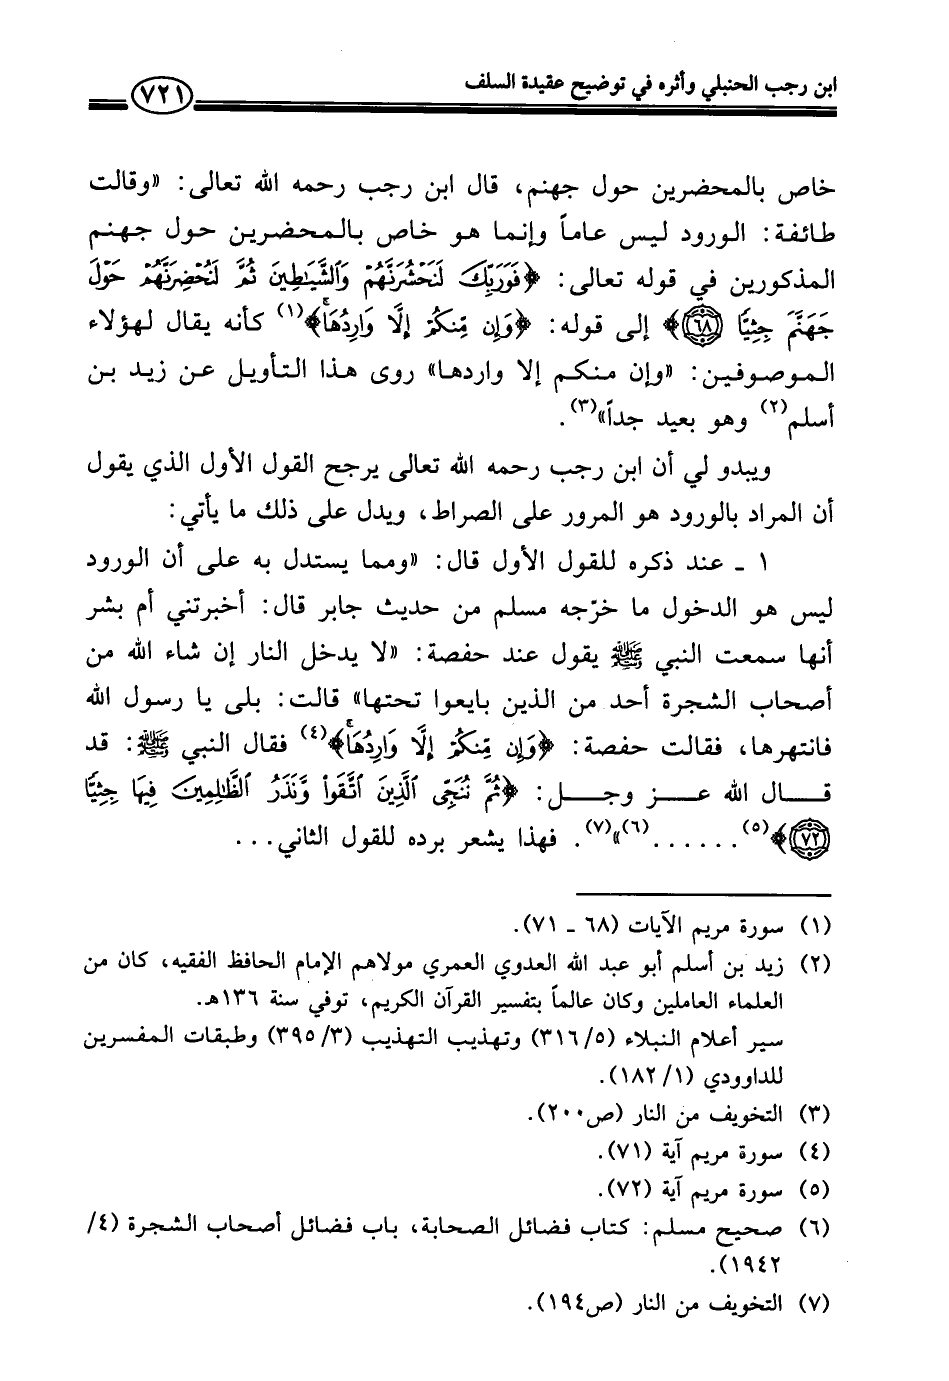 ابن رجب الحنبلي وأثره في توضيح عقيدة السلف
٧٢١
خاص بالمحضرين حول جهنم، قال ابن رجب رحمه الله تعالى: «وقالت
طائفة: الورود ليس عاماً وإنما هو خاص بالمحضرين حول جهنم
المذكورين في قوله تعالى: ﴿فَوَرَبِّكَ لَنَحْشُرَنَّهُمْ وَالشَّيَاطِينَ ثُمَّ لَنُحْضِرَنَّهُمْ حَوْلَ
جَهَنَّمَ جِثِيًّا ۝٦٨﴾ إلى قوله: ﴿وَإِن مِّنكُمْ إِلَّا وَارِدُهَا﴾(١) كأنه يقال لهؤلاء
الموصوفين: «وإن منكم إلا واردها» روى هذا التأويل عن زيد بن
أسلم(٢) وهو بعيد جداً»(٣).
ويبدو لي أن ابن رجب رحمه الله تعالى يرجح القول الأول الذي يقول
أن المراد بالورود هو المرور على الصراط، ويدل على ذلك ما يأتي:
١ ـ عند ذكره للقول الأول قال: «ومما يستدل به على أن الورود
ليس هو الدخول ما خرّجه مسلم من حديث جابر قال: أخبرتني أم بشر
أنها سمعت النبي ﷺ يقول عند حفصة: «لا يدخل النار إن شاء الله من
أصحاب الشجرة أحد من الذين بايعوا تحتها» قالت: بلى يا رسول الله
فانتهرها، فقالت حفصة: ﴿وَإِن مِّنكُمْ إِلَّا وَارِدُهَا﴾(٤) فقال النبي ﷺ: قد
قال الله عز وجل: ﴿ثُمَّ نُنَجِّى ٱلَّذِينَ ٱتَّقَوا۟ وَّنَذَرُ ٱلظَّٰلِمِينَ فِيهَا جِثِيًّا
۝٧٢﴾(٥) . . . . . .(٦)»(٧). فهذا يشعر برده للقول الثاني . . .
(١) سورة مريم الآيات (٦٨ ـ ٧١).
(٢) زيد بن أسلم أبو عبد الله العدوي العمري مولاهم الإمام الحافظ الفقيه، كان من
العلماء العاملين وكان عالماً بتفسير القرآن الكريم، توفي سنة ١٣٦هـ.
سير أعلام النبلاء (٣١٦/٥) وتهذيب التهذيب (٣٩٥/٣) وطبقات المفسرين
للداوودي (١٨٢/١).
(٣) التخويف من النار (ص٢٠٠).
(٤) سورة مريم آية (٧١).
(٥) سورة مريم آية (٧٢).
(٦) صحيح مسلم: كتاب فضائل الصحابة، باب فضائل أصحاب الشجرة (٤/
١٩٤٢).
(٧) التخويف من النار (ص١٩٤).